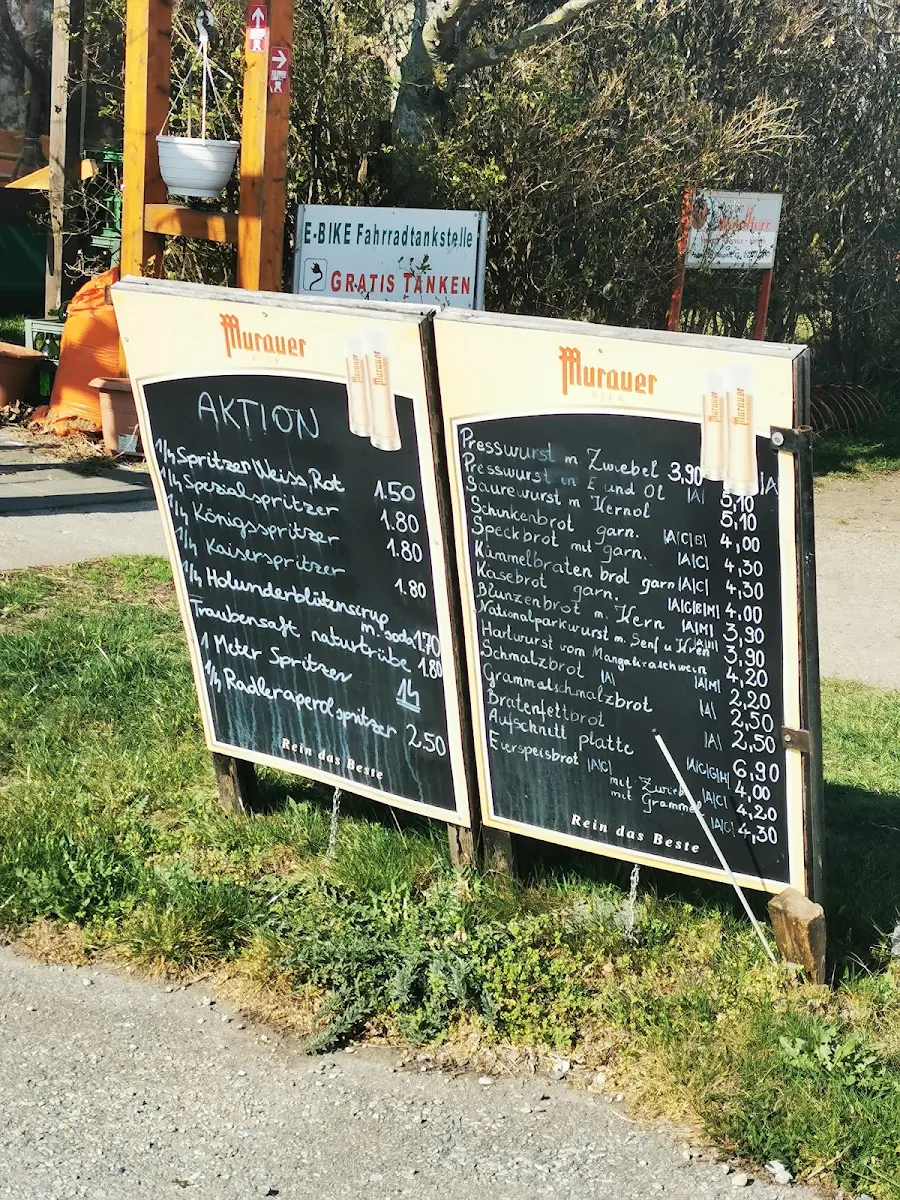 E-BIKE Fahrradtankstelle
GRATIS TANKEN
Murauer
BIER
AKTION
1/4 Spritzer Weiss, Rot 1.50
1/4 Spezialspritzer 1.80
1/4 Königsspritzer 1.80
1/4 Kaiserspritzer 1.80
1/4 Holunderblütensirup
m. soda 1.70
Traubensaft naturtrübe 1.80
1 Meter Spritzer 14
1/4 Radleraperolspritzer 2.50
Rein das Beste
Murauer
BIER
Presswurst m Zwiebel 3,90
Presswurst in E und Öl |A| 5,10
Saurewurst m Kernöl 5,10
Schinkenbrot garn. |A|C|G| 4,00
Speckbrot mit garn. |A|C| 4,30
Kümmelbraten brot garn |A|C| 4,30
Käsebrot garn. |A|C|G|M| 4,00
Blunzenbrot m. Kern |A|M| 3,90
Nationalparkwurst m. Senf u Kren 3,90
Hartwurst vom Mangalizaschwein |A|M| 4,20
Schmalzbrot |A| 2,20
Grammelschmalzbrot |A| 2,50
Bratenfettbrot |A| 2,50
Aufschnitt platte |A|C|G|H| 6,90
Eierspeisbrot |A|C| 4,00
mit Zwiebel |A|C| 4,20
mit Grammel |A|C| 4,30
Rein das Beste